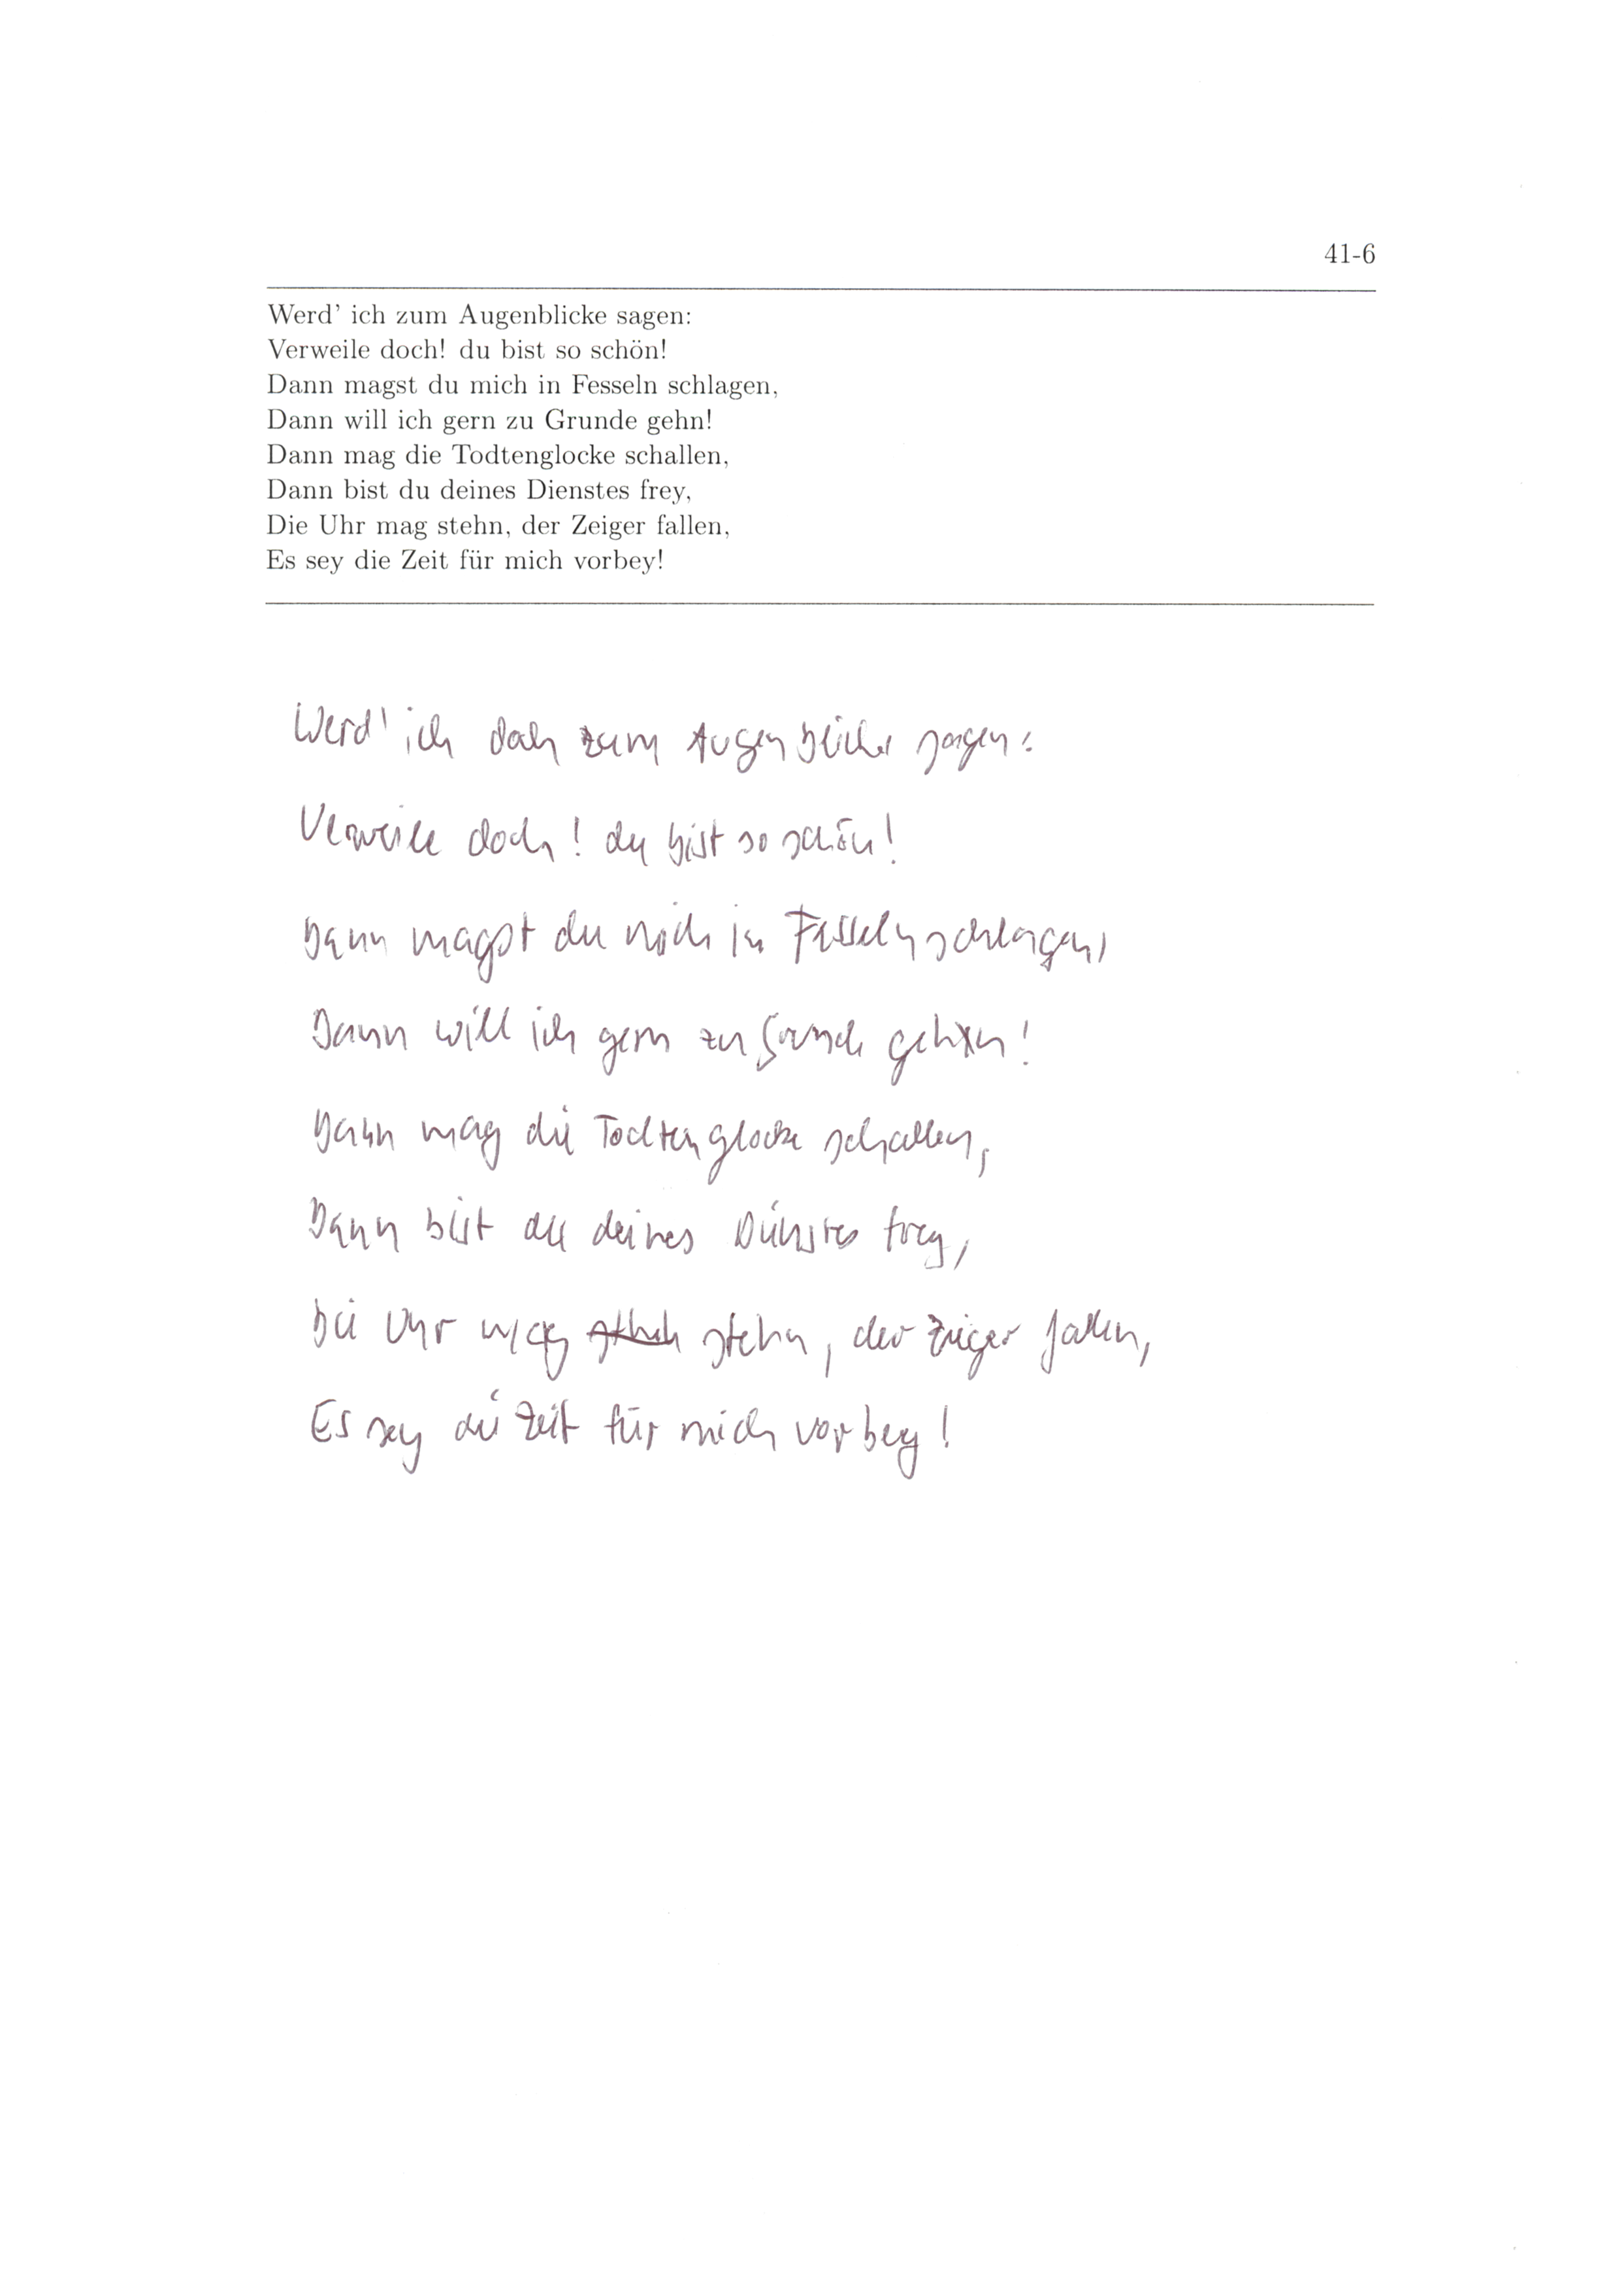 41-6
Werd' ich zum Augenblicke sagen:
Verweile doch! du bist so schön!
Dann magst du mich in Fesseln schlagen,
Dann will ich gern zu Grunde gehn!
Dann mag die Todtenglocke schallen,
Dann bist du deines Dienstes frey,
Die Uhr mag stehn, der Zeiger fallen,
Es sey die Zeit für mich vorbey!
Werd' ich doch zum Augenblicke sagen:
Verweile doch! du bist so schön!
Dann magst du mich in Fesseln schlagen,
Dann will ich gern zu Grunde gehn!
Dann mag die Todtenglocke schallen,
Dann bist du deines Dienstes frey,
Die Uhr mag stehn, der Zeiger fallen,
Es sey die Zeit für mich vorbey!